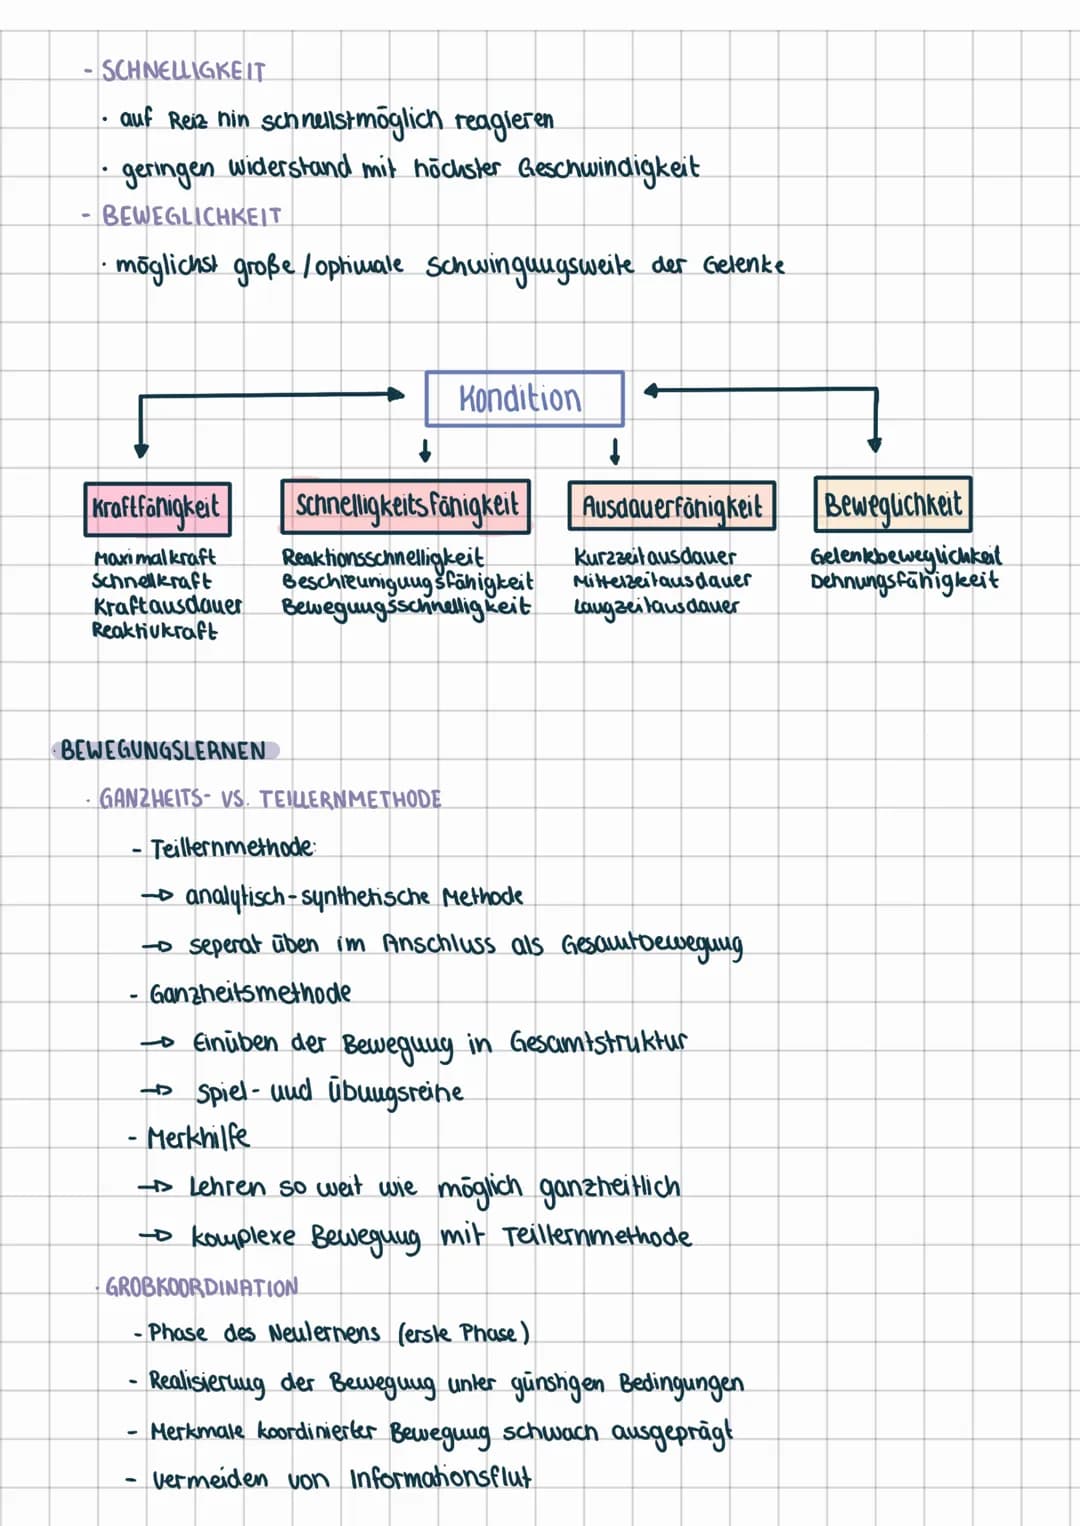 - SCHNELLIGKEIT
· auf Reiz hin schnellstmöglich reagieren
· geringen Widerstand mit höchster Geschwindigkeit
- BEWEGLICHKEIT
· möglichst große / optimale Schwingungsweite der Gelenke
Kondition
Kraftfähigkeit
Maximalkraft
Schnellkraft
Kraftausdauer
Reaktivkraft
Schnelligkeitsfähigkeit
Reaktionsschnelligkeit
Beschleunigungsfähigkeit
Bewegungsschnelligkeit
Ausdauerfähigkeit
Kurzzeitausdauer
Mittelzeitausdauer
Langzeitausdauer
Beweglichkeit
Gelenkbeweglichkeit
Dehnungsfähigkeit
· BEWEGUNGSLERNEN
· GANZHEITS- VS. TEILLERNMETHODE
- Teillernmethode:
→ analytisch-synthetische Methode
→ seperat üben im Anschluss als Gesamtbewegung
- Ganzheitsmethode
→ Einüben der Bewegung in Gesamtstruktur
→ Spiel- und Übungsreihe
- Merkhilfe
→ Lehren so weit wie möglich ganzheitlich
→ komplexe Bewegung mit Teillernmethode
· GROBKOORDINATION
- Phase des Neulernens (erste Phase)
- Realisierung der Bewegung unter günstigen Bedingungen
- Merkmale koordinierter Bewegung schwach ausgeprägt
- vermeiden von Informationsflut